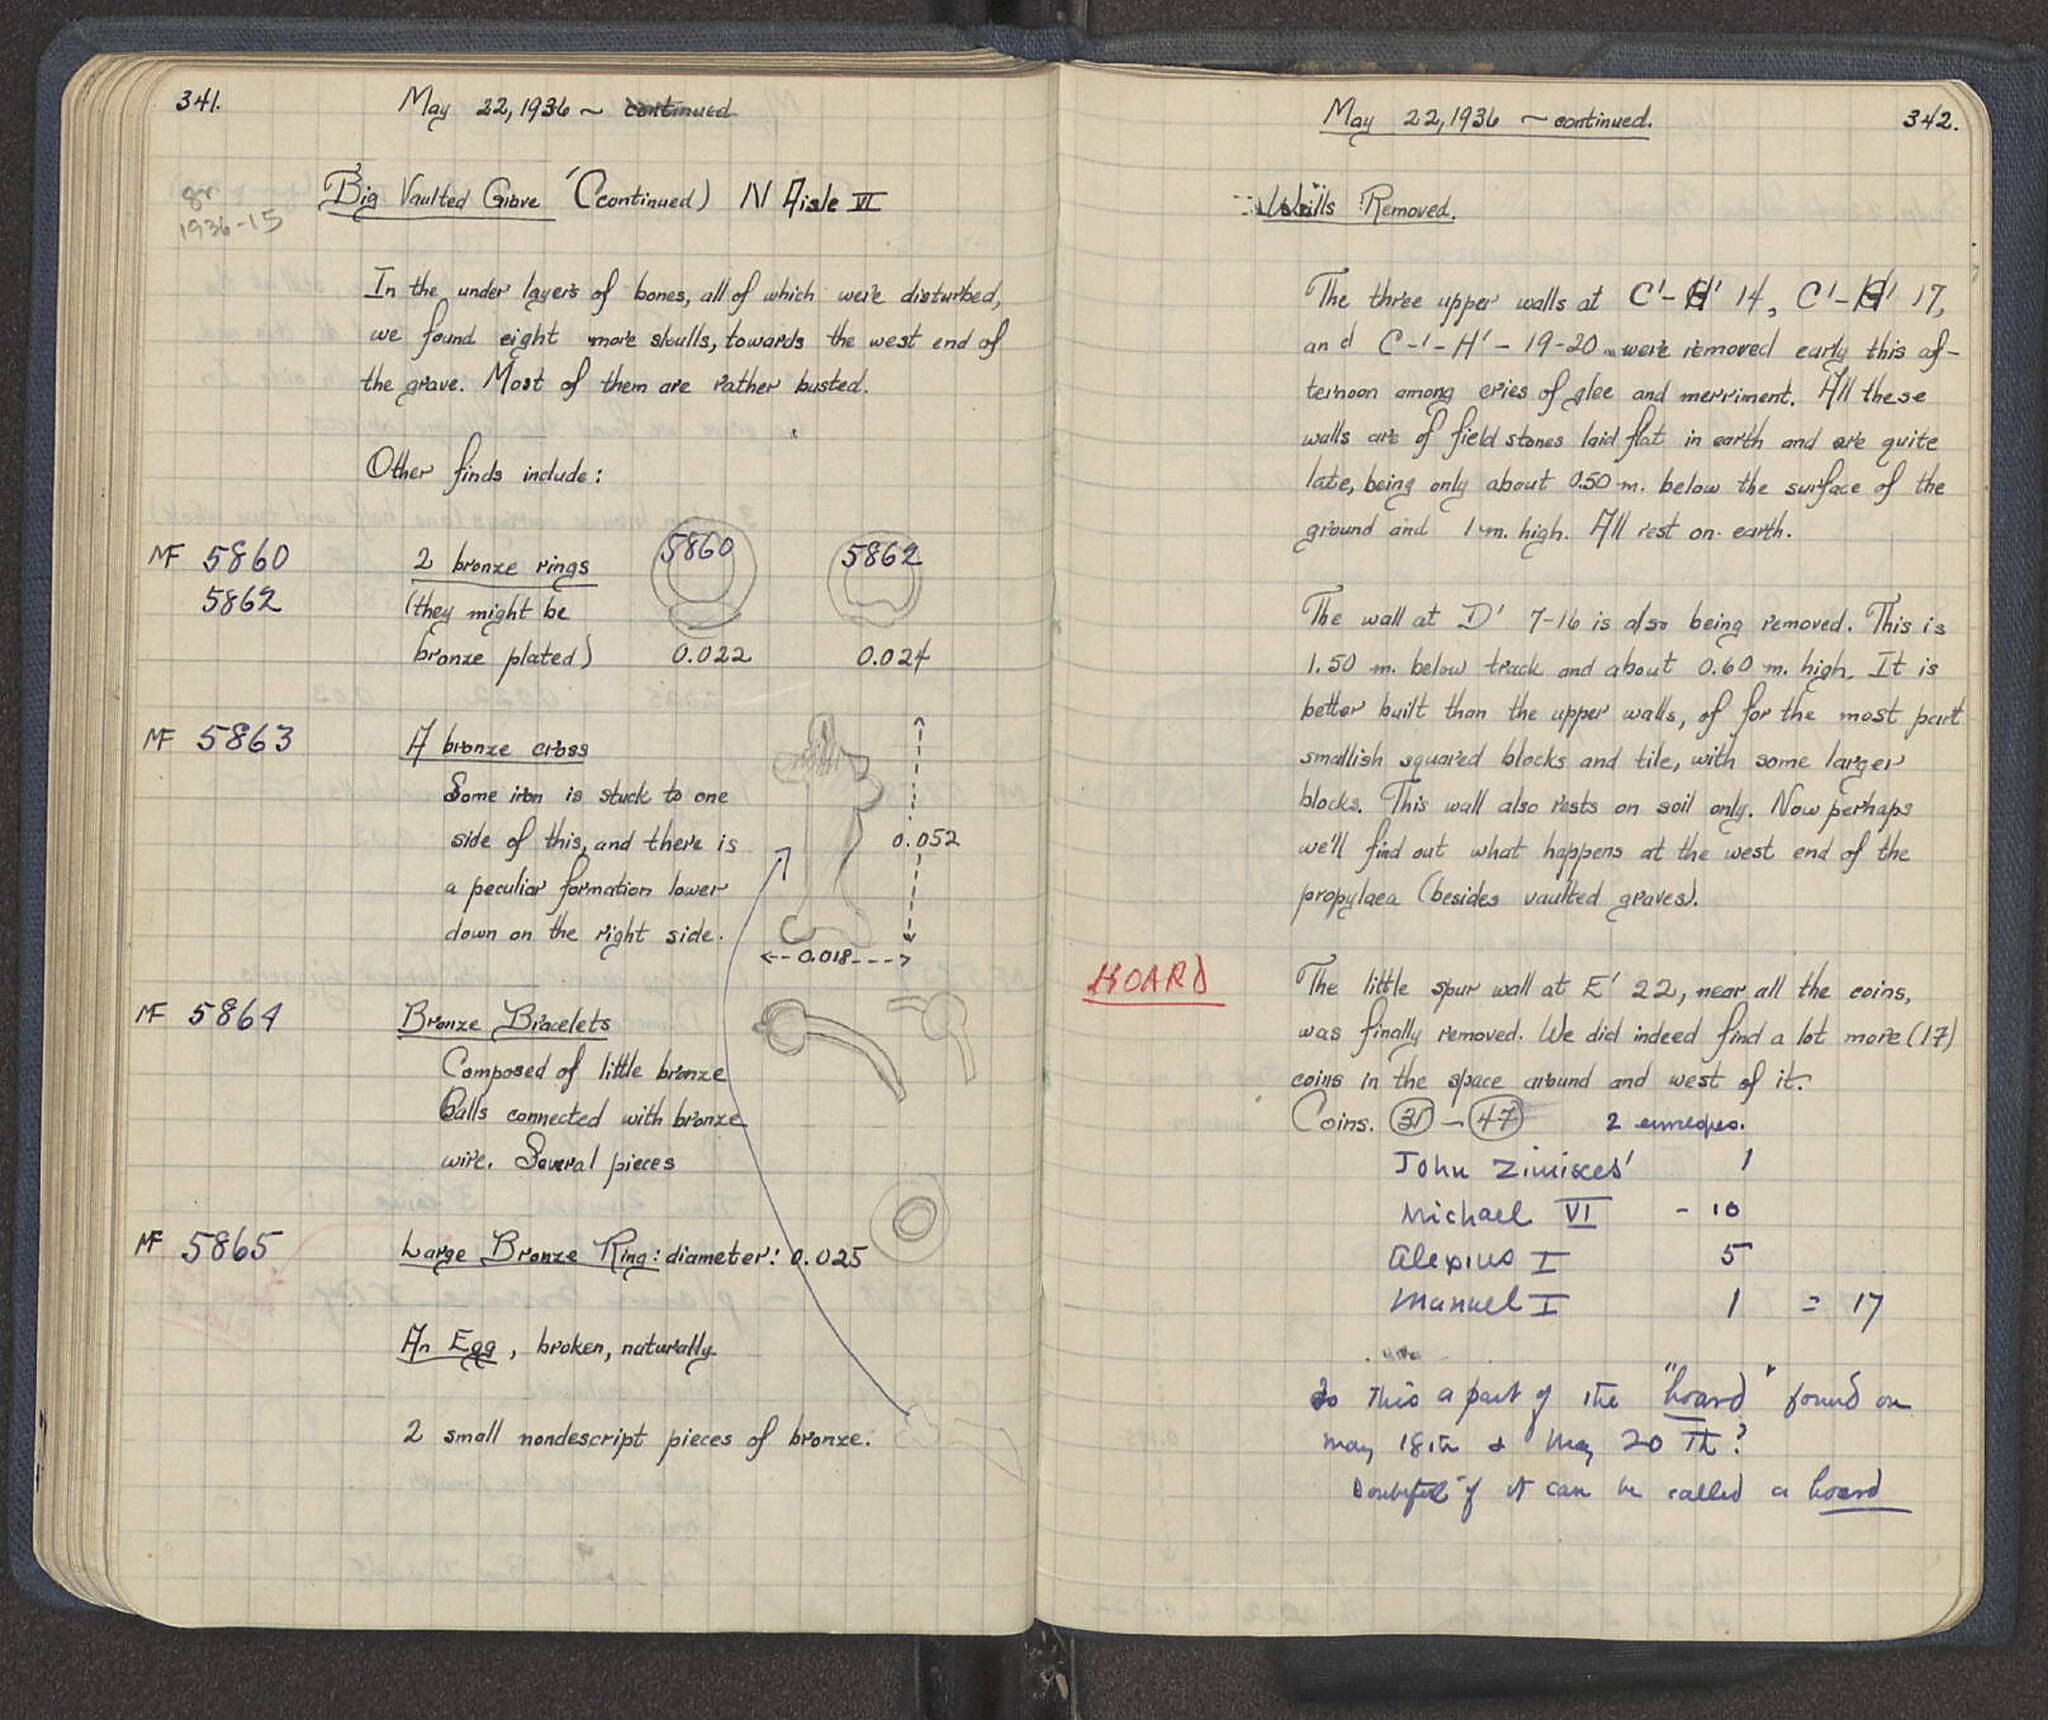 341.
May 22, 1936 ~ continued
gr.
1936-15
Big Vaulted Grave (Continued) N Aisle VI
In the under layers of bones, all of which were disturbed,
we found eight more skulls, towards the west end of
the grave. Most of them are rather busted.
Other finds include:
MF 5860
5862
2 bronze rings
(they might be
bronze plated)
5860
5862
0.022
0.024
MF 5863
A bronze cross
Some iron is stuck to one
side of this, and there is
a peculiar formation lower
down on the right side.
0.052
0.018
MF 5864
Bronze Bracelets
Composed of little bronze
balls connected with bronze
wire. Several pieces
MF 5865
Large Bronze Ring: diameter: 0.025
An Egg, broken, naturally
2 small nondescript pieces of bronze.
May 22, 1936 ~ continued.
342.
Walls Removed.
The three upper walls at C'- H' 14, C'- H' 17,
and C-'-H'- 19-20 were removed early this af-
ternoon among cries of glee and merriment. All these
walls are of field stones laid flat in earth and are quite
late, being only about 0.50 m. below the surface of the
ground and 1 m. high. All rest on earth.
The wall at D' 7-16 is also being removed. This is
1.50 m. below track and about 0.60 m. high. It is
better built than the upper walls, of for the most part
smallish squared blocks and tile, with some larger
blocks. This wall also rests on soil only. Now perhaps
we'll find out what happens at the west end of the
propylaea (besides vaulted graves).
HOARD
The little spur wall at E' 22, near all the coins,
was finally removed. We did indeed find a lot more (17)
coins in the space around and west of it.
Coins. 31 - 47 2
John Zimisces' 1
Michael VI - 10
Alexius I 5
Manuel I 1 = 17
Is this a part of the "hoard" found on
May 18th & May 20th?
Doubtful if it can be called a hoard